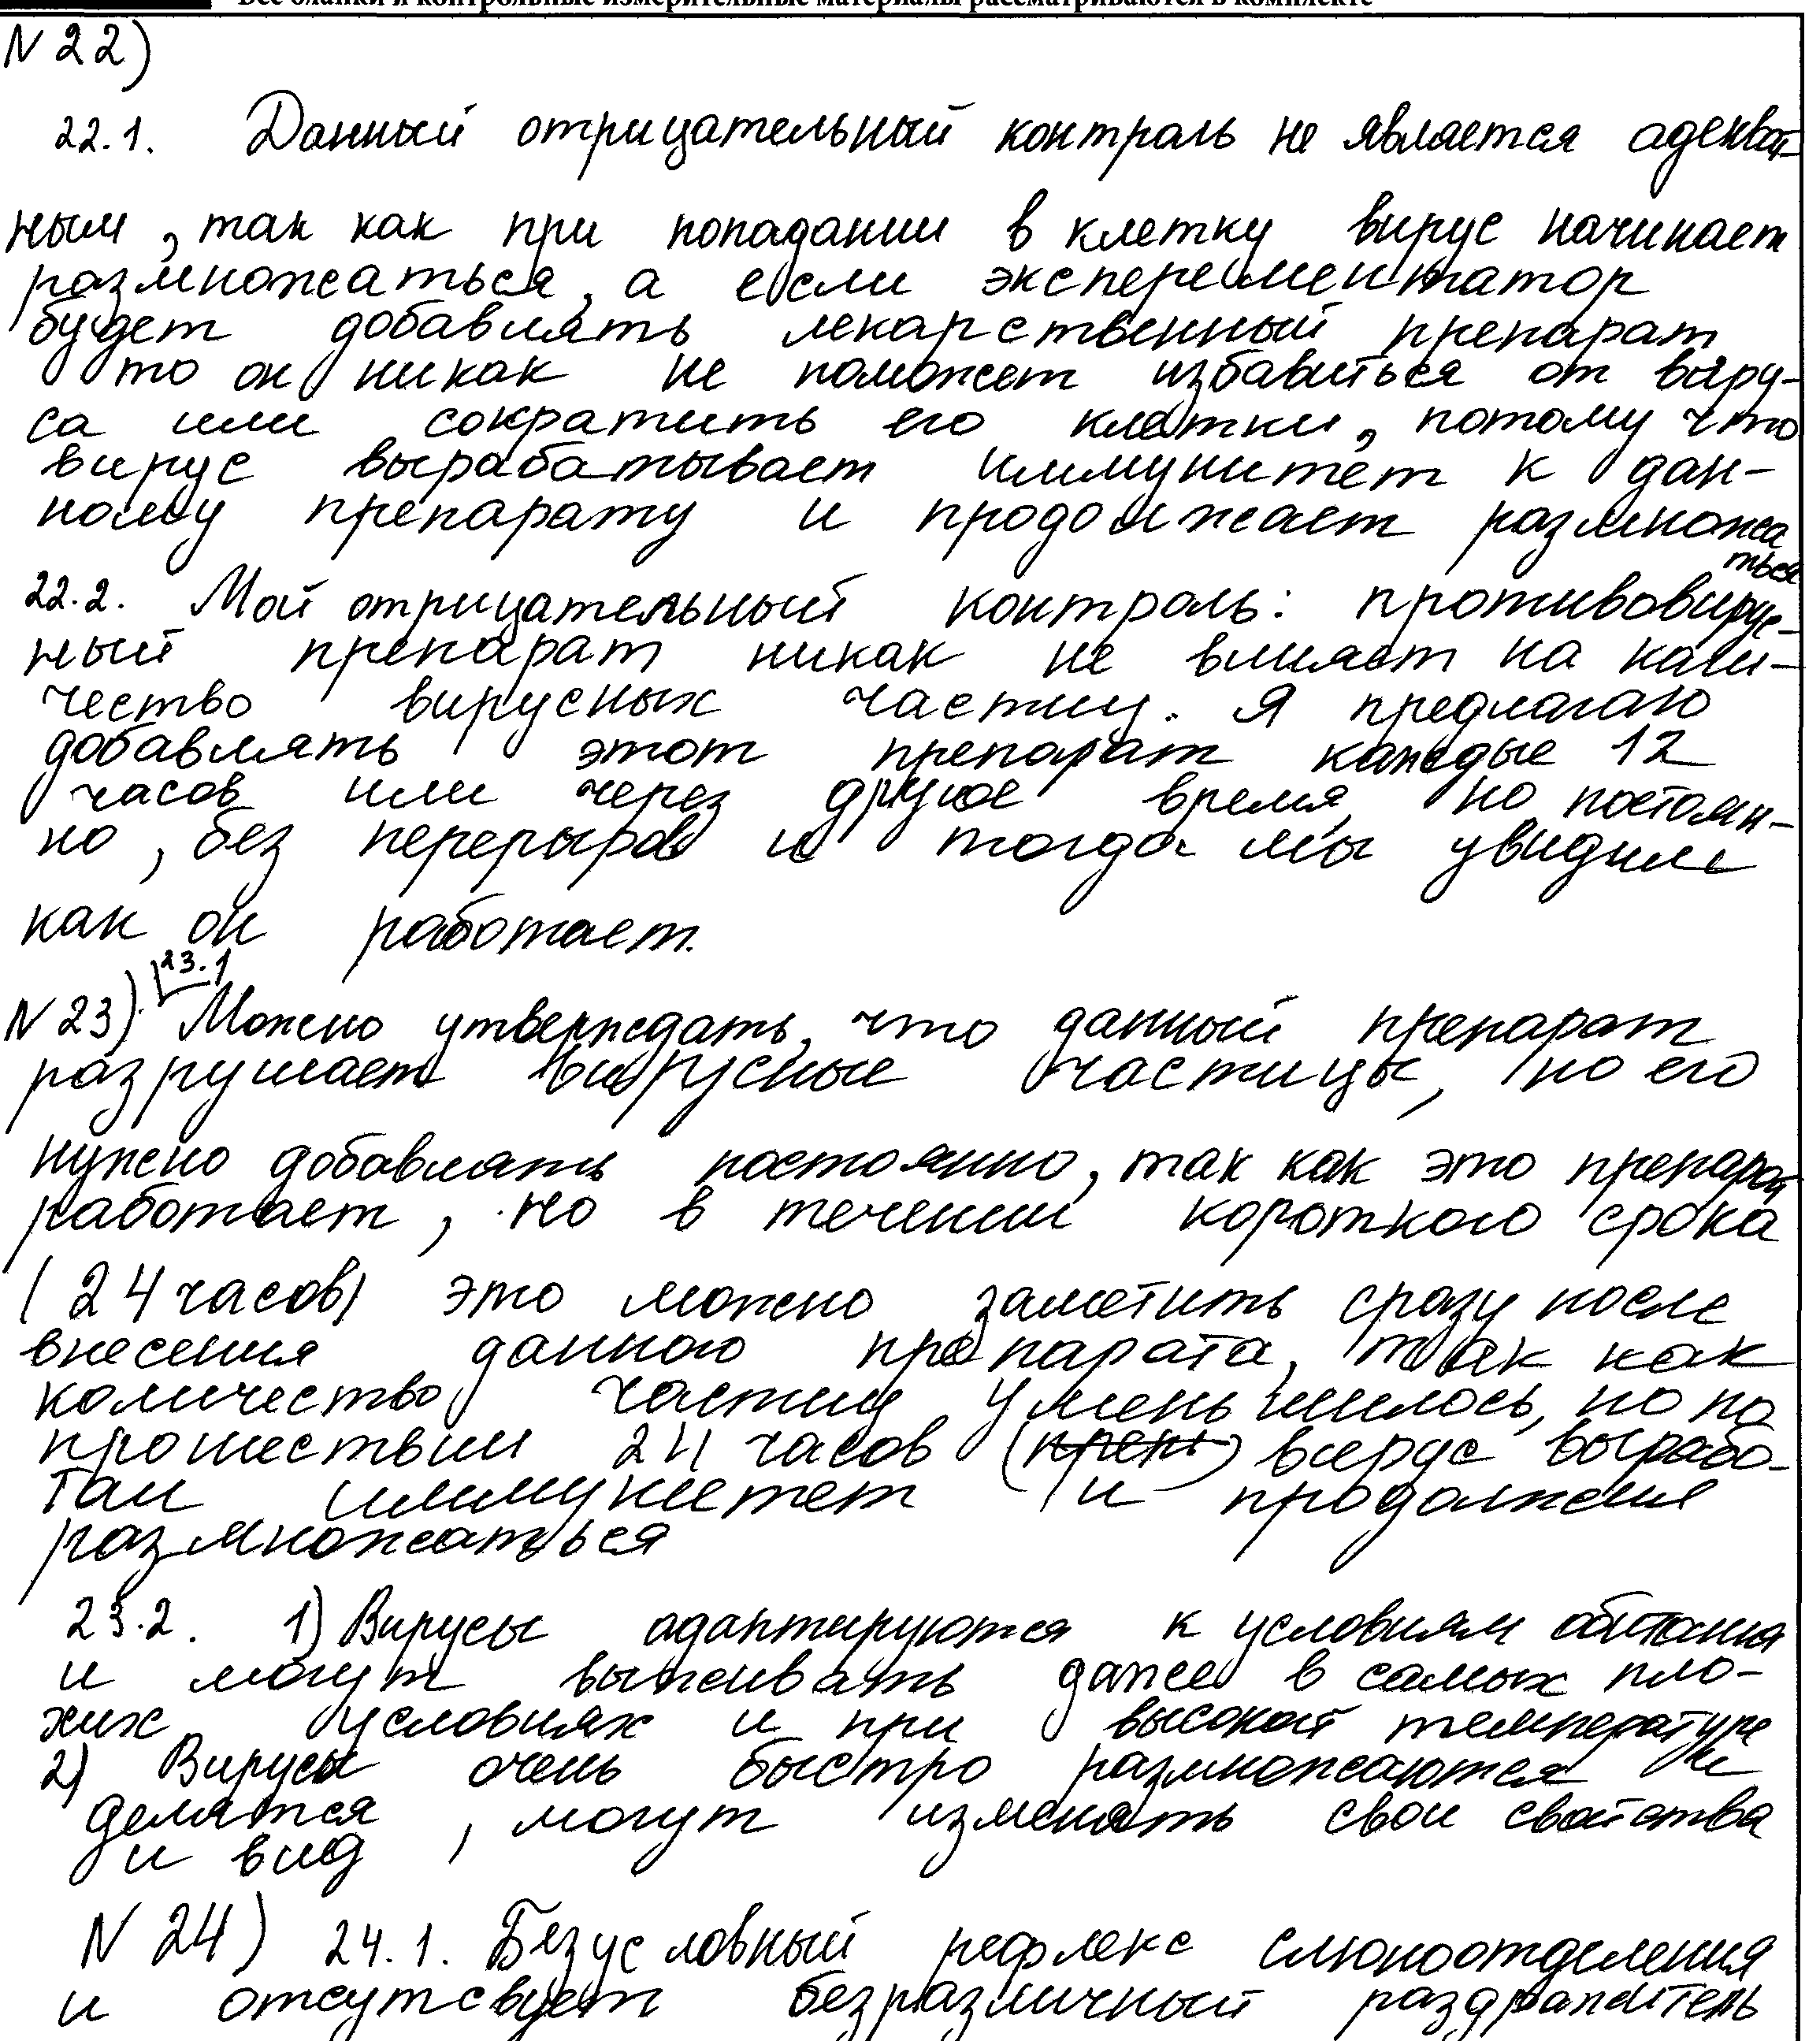 Все бланки и контрольные измерительные материалы рассматриваются в комплекте
N 22)
22.1. Данный отрицательный контроль не является адекват-
ным, так как при попадании в клетку вирус начинает
размножаться, а если эксперементатор
будет добавлять лекарственный препарат
то он никак не поможет избавиться от виру-
са или сократить его клетки, потому что
вирус вырабатывает иммунитет к дан-
ному препарату и продолжает размножа
ться
22.2. Мой отрицательный контроль: противовирус-
ный препарат никак не влияет на коли-
чество вирусных частиц. Я предлагаю
добавлять этот препарат каждые 12
часов или через другое время, но постоян-
но, без перерыров и тогда мы увидим
как он работает.
23.1
N 23) Можно утверждать, что данный препарат
разрушает вирусные частицы, но его
нужно добавлять постоянно, так как это препарат
работает, но в течении короткого срока
(24 часов) это можно заметить сразу после
внесения данного препарата, так как
количество частиц уменьшилось, но по
прошествии 24 часов (преп) вирус вырабо-
тал иммунитет и продолжил
размножаться
23.2. 1) Вирусы адаптируются к условиям обитания
и могут выживать даже в самых пло-
хих условиях и при высокой температуре
2) Вирусы очень быстро размножаются и
делятся, могут изменять свои свойства
и вид
N 24) 24.1. Безусловный рефлекс слюноотделения
и отсутсвует безразличный раздражитель